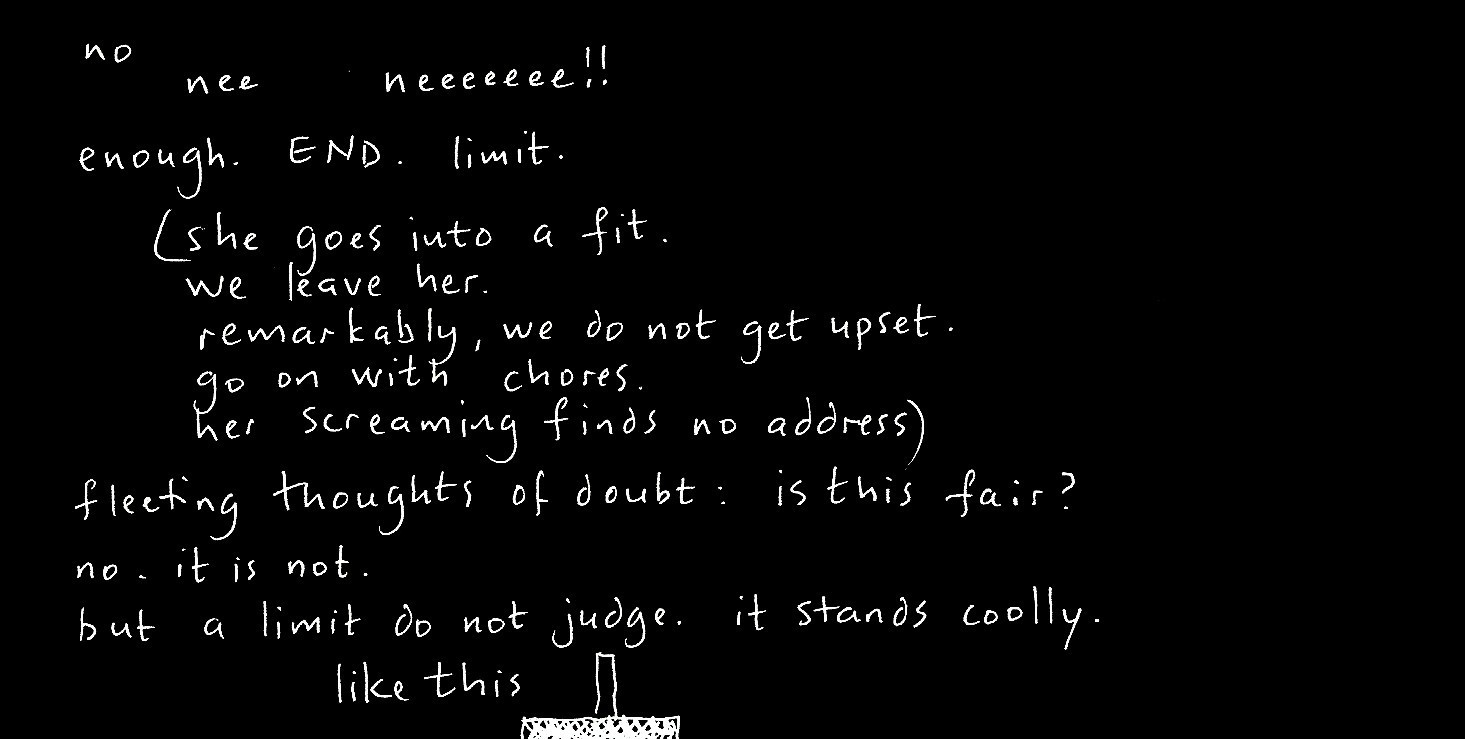 no
nee neeeeeee!!
enough. END. limit.
(she goes into a fit.
we leave her.
remarkably, we do not get upset.
go on with chores.
her screaming finds no address)
fleeting thoughts of doubt: is this fair?
no. it is not.
but a limit do not judge. it stands coolly.
like this